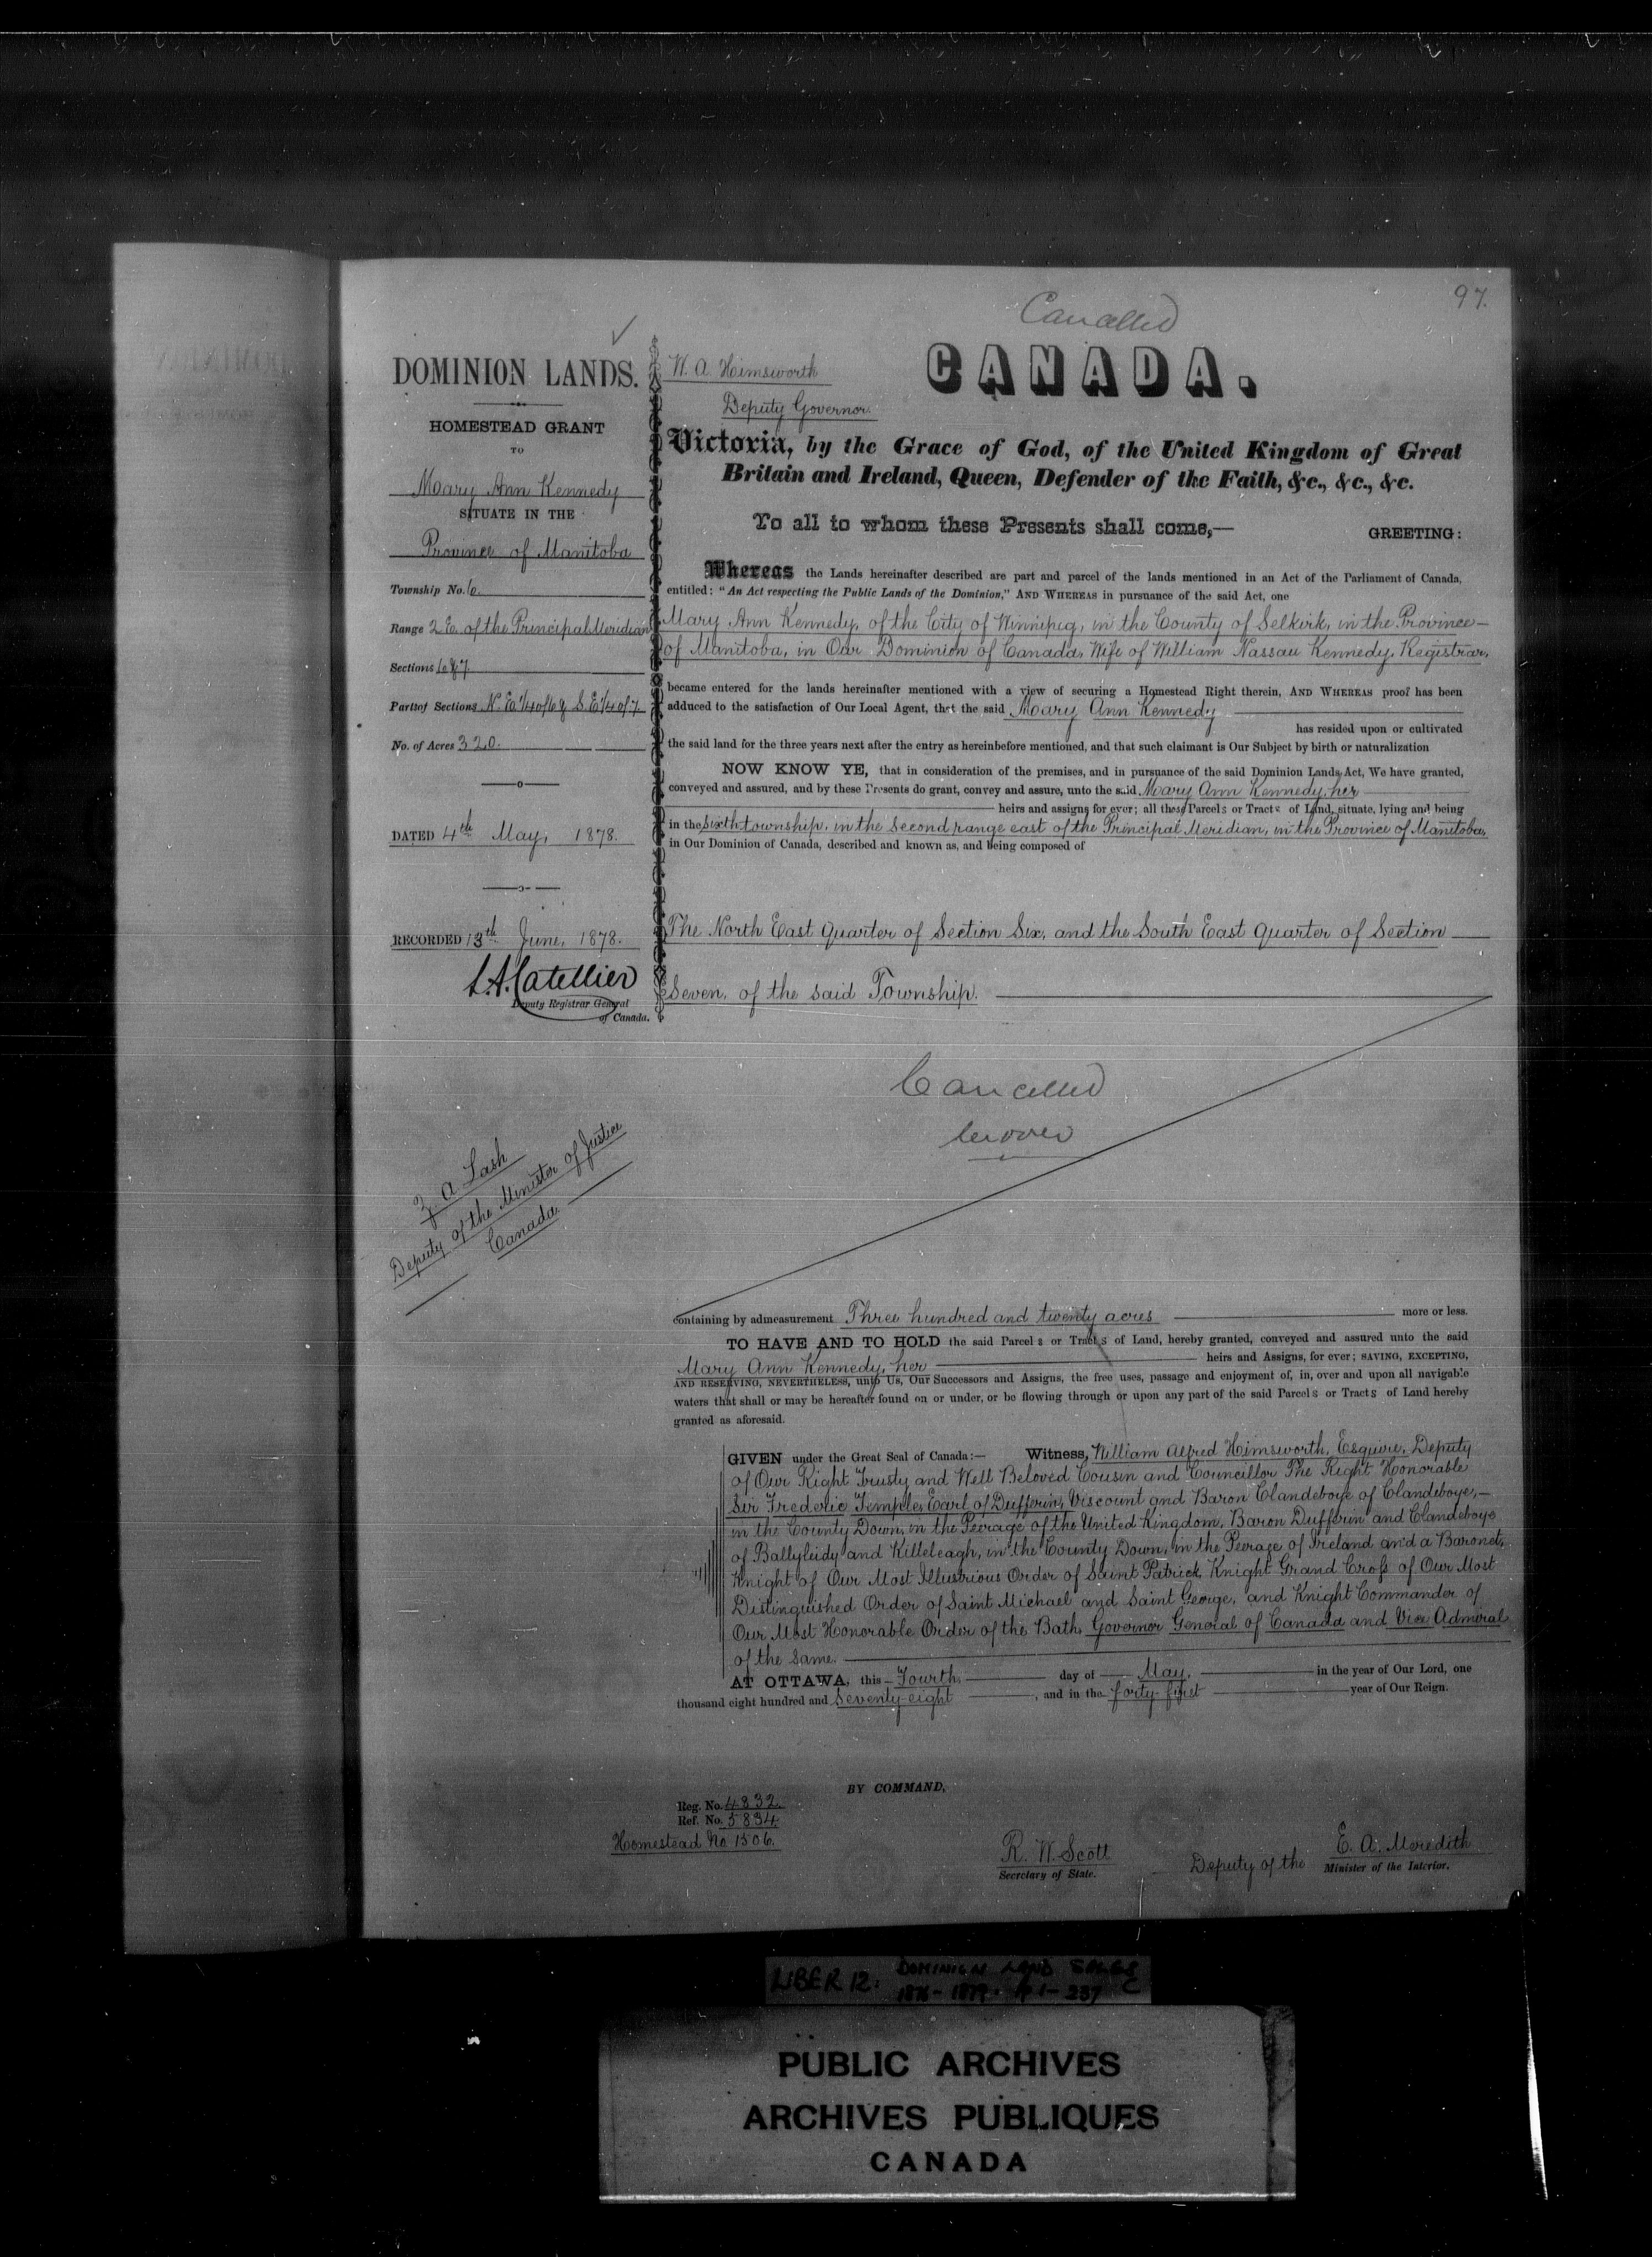 97.
Cancelled
DOMINION LANDS.
HOMESTEAD GRANT
TO
Mary Ann Kennedy
SITUATE IN THE
Province of Manitoba
Township No. 6
Range 2 E. of the Principal Meridian
Sections 6 & 7
Parts of Sections N. E. 1/4 of 6 & S. E. 1/4 of 7
No. of Acres 320.
DATED 4th May, 1878.
RECORDED 13th June, 1878.
L.A. Catellier
Deputy Registrar General
of Canada.
Z. A. Lash
Deputy of the Minister of Justice
Canada
W. A. Himsworth
Deputy Governor.
CANADA.
Victoria, by the Grace of God, of the United Kingdom of Great
Britain and Ireland, Queen, Defender of the Faith, &c., &c., &c.
To all to whom these Presents shall come,— GREETING:
Whereas the Lands hereinafter described are part and parcel of the lands mentioned in an Act of the Parliament of Canada,
entitled: "An Act respecting the Public Lands of the Dominion," AND WHEREAS in pursuance of the said Act, one
Mary Ann Kennedy, of the City of Winnipeg, in the County of Selkirk, in the Province—
of Manitoba, in Our Dominion of Canada, Wife of William Nassau Kennedy, Registrar,
became entered for the lands hereinafter mentioned with a view of securing a Homestead Right therein, AND WHEREAS proof has been
adduced to the satisfaction of Our Local Agent, that the said Mary Ann Kennedy
has resided upon or cultivated
the said land for the three years next after the entry as hereinbefore mentioned, and that such claimant is Our Subject by birth or naturalization
NOW KNOW YE, that in consideration of the premises, and in pursuance of the said Dominion Lands Act, We have granted,
conveyed and assured, and by these Presents do grant, convey and assure, unto the said Mary Ann Kennedy, her
heirs and assigns for ever; all those Parcels or Tracts of Land, situate, lying and being
in the Sixth township, in the Second range east of the Principal Meridian, in the Province of Manitoba,
in Our Dominion of Canada, described and known as, and being composed of
The North East Quarter of Section Six, and the South East Quarter of Section
Seven, of the said Township.
Cancelled
containing by admeasurement Three hundred and twenty acres more or less.
TO HAVE AND TO HOLD the said Parcels or Tracts of Land, hereby granted, conveyed and assured unto the said
Mary Ann Kennedy, her heirs and Assigns, for ever; SAVING, EXCEPTING,
AND RESERVING, NEVERTHELESS, unto Us, Our Successors and Assigns, the free uses, passage and enjoyment of, in, over and upon all navigable
waters that shall or may be hereafter found on or under, or be flowing through or upon any part of the said Parcels or Tracts of Land hereby
granted as aforesaid.
GIVEN under the Great Seal of Canada:— Witness, William Alfred Himsworth, Esquire, Deputy
of Our Right Trusty and Well Beloved Cousin and Councillor The Right Honorable
Sir Frederic Temple, Earl of Dufferin, Viscount and Baron Clandeboye of Clandeboye,—
in the County Down, in the Peerage of the United Kingdom, Baron Dufferin and Clandeboye
of Ballyleidy and Killeleagh, in the County Down, in the Peerage of Ireland and a Baronet,
Knight of Our Most Illustrious Order of Saint Patrick, Knight Grand Cross of Our Most
Distinguished Order of Saint Michael and Saint George, and Knight Commander of
Our Most Honorable Order of the Bath, Governor General of Canada and Vice Admiral
of the same.
AT OTTAWA, this Fourth day of May, in the year of Our Lord, one
thousand eight hundred and Seventy-eight, and in the forty-first year of Our Reign.
BY COMMAND,
Reg. No. 4832.
Ref. No. 5834
Homestead No 1506.
R. W. Scott
Secretary of State.
E. A. Meredith
Deputy of the Minister of the Interior.
LIBER 12: DOMINION LAND SALES
PUBLIC ARCHIVES
ARCHIVES PUBLIQUES
CANADA